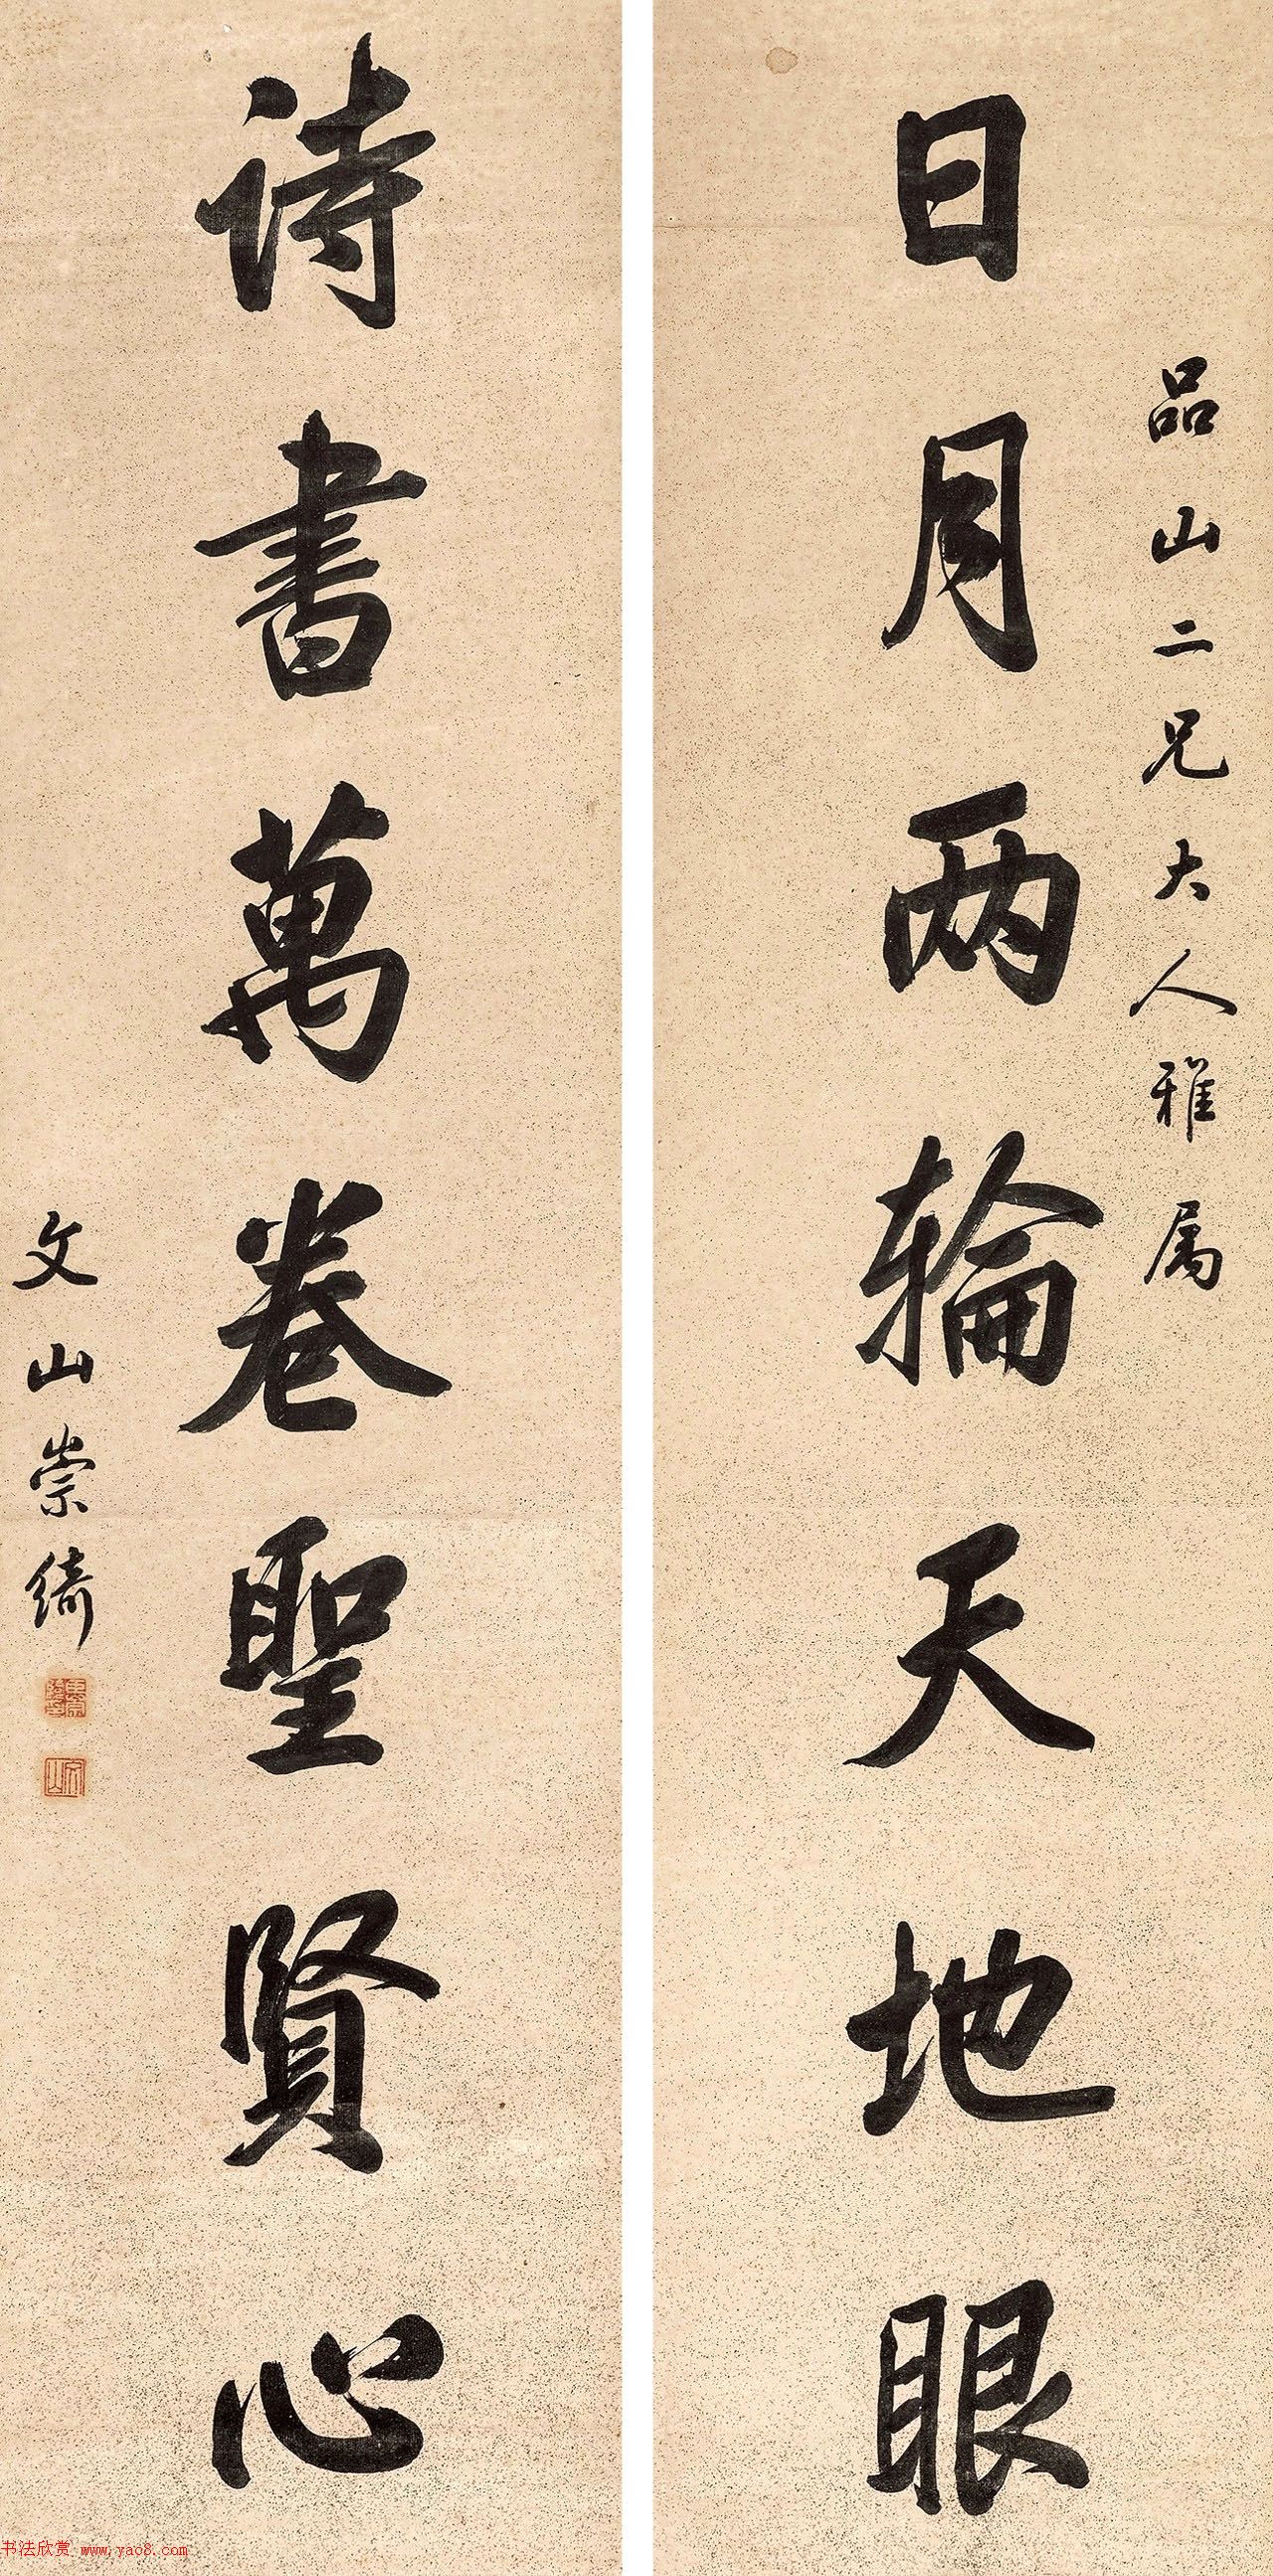 品山二兄大人雅属
日月两轮天地眼
诗書萬卷聖賢心
文山崇绮
文山
书法欣赏 www.yac8.com